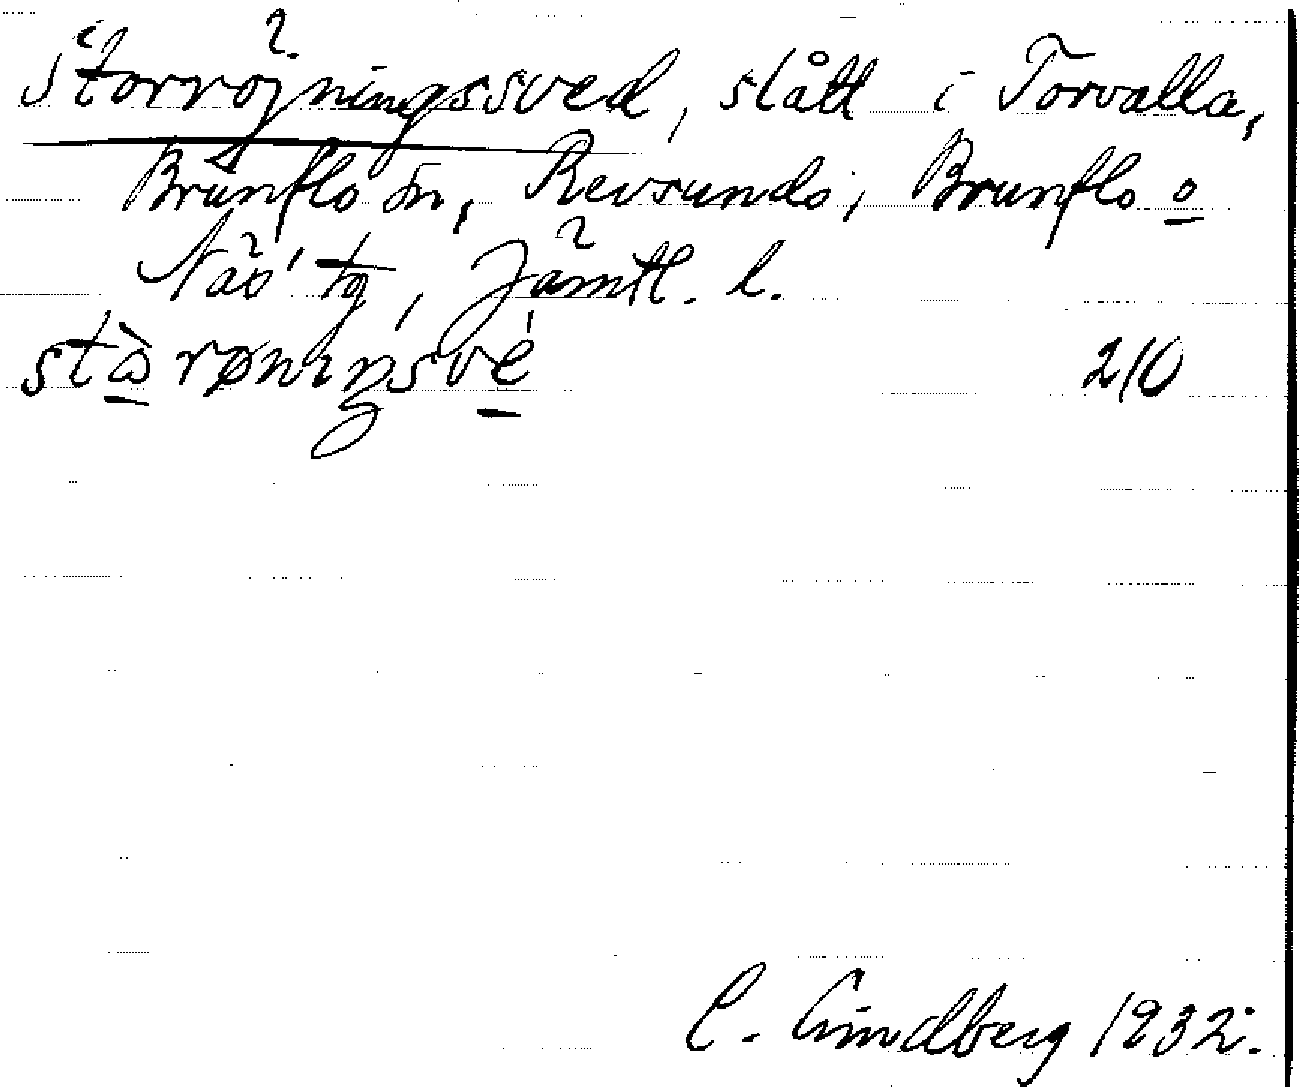 Storröjningssved, slått i Torvalla,
Brunflo sn, Revsunds, Brunflo o
Näs tg, Jämtl. l.
stò rønıŋsvé 210
C. Lindberg 1932.